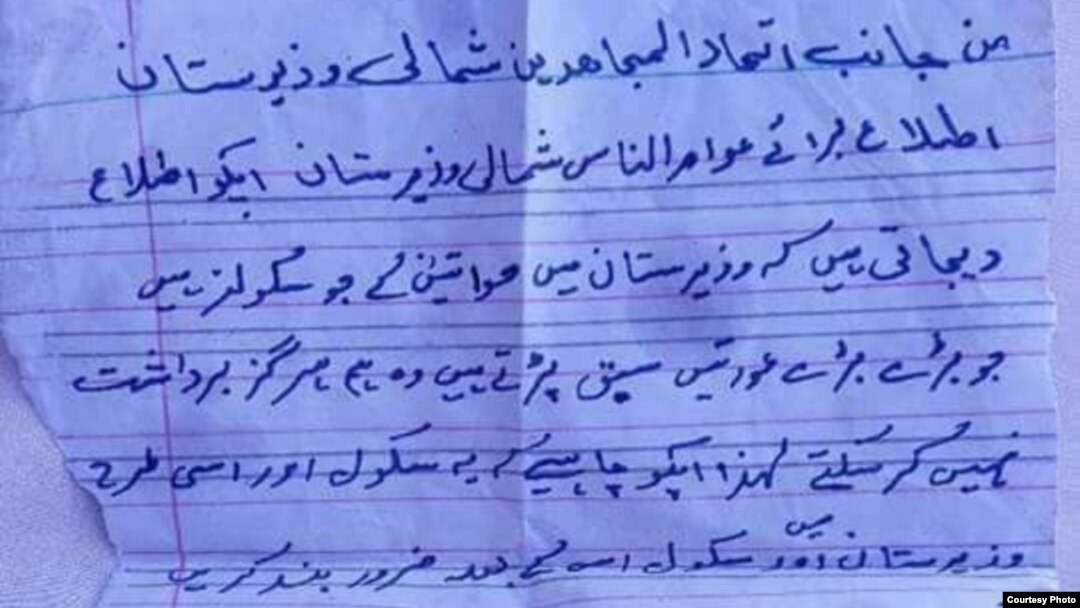 من جانب اتحاد المجاهدین شمالی وزیرستان
اطلاع برائے عوام الناس شمالی وزیرستان اپکو اطلاع
دیجاتی ہیں کہ وزیرستان میں خواتین کے جو سکولز ہیں
جو بڑے بڑے عورتیں سبق پڑتے ہیں وہ ہم ہرگز برداشت
نہیں کر سکتے لہذا اپکو چاہیے کہ یہ سکول اور اسی طرح
وزیرستان میں اور سکول اس کے بعد ضرور بند کریں
Courtesy Photo